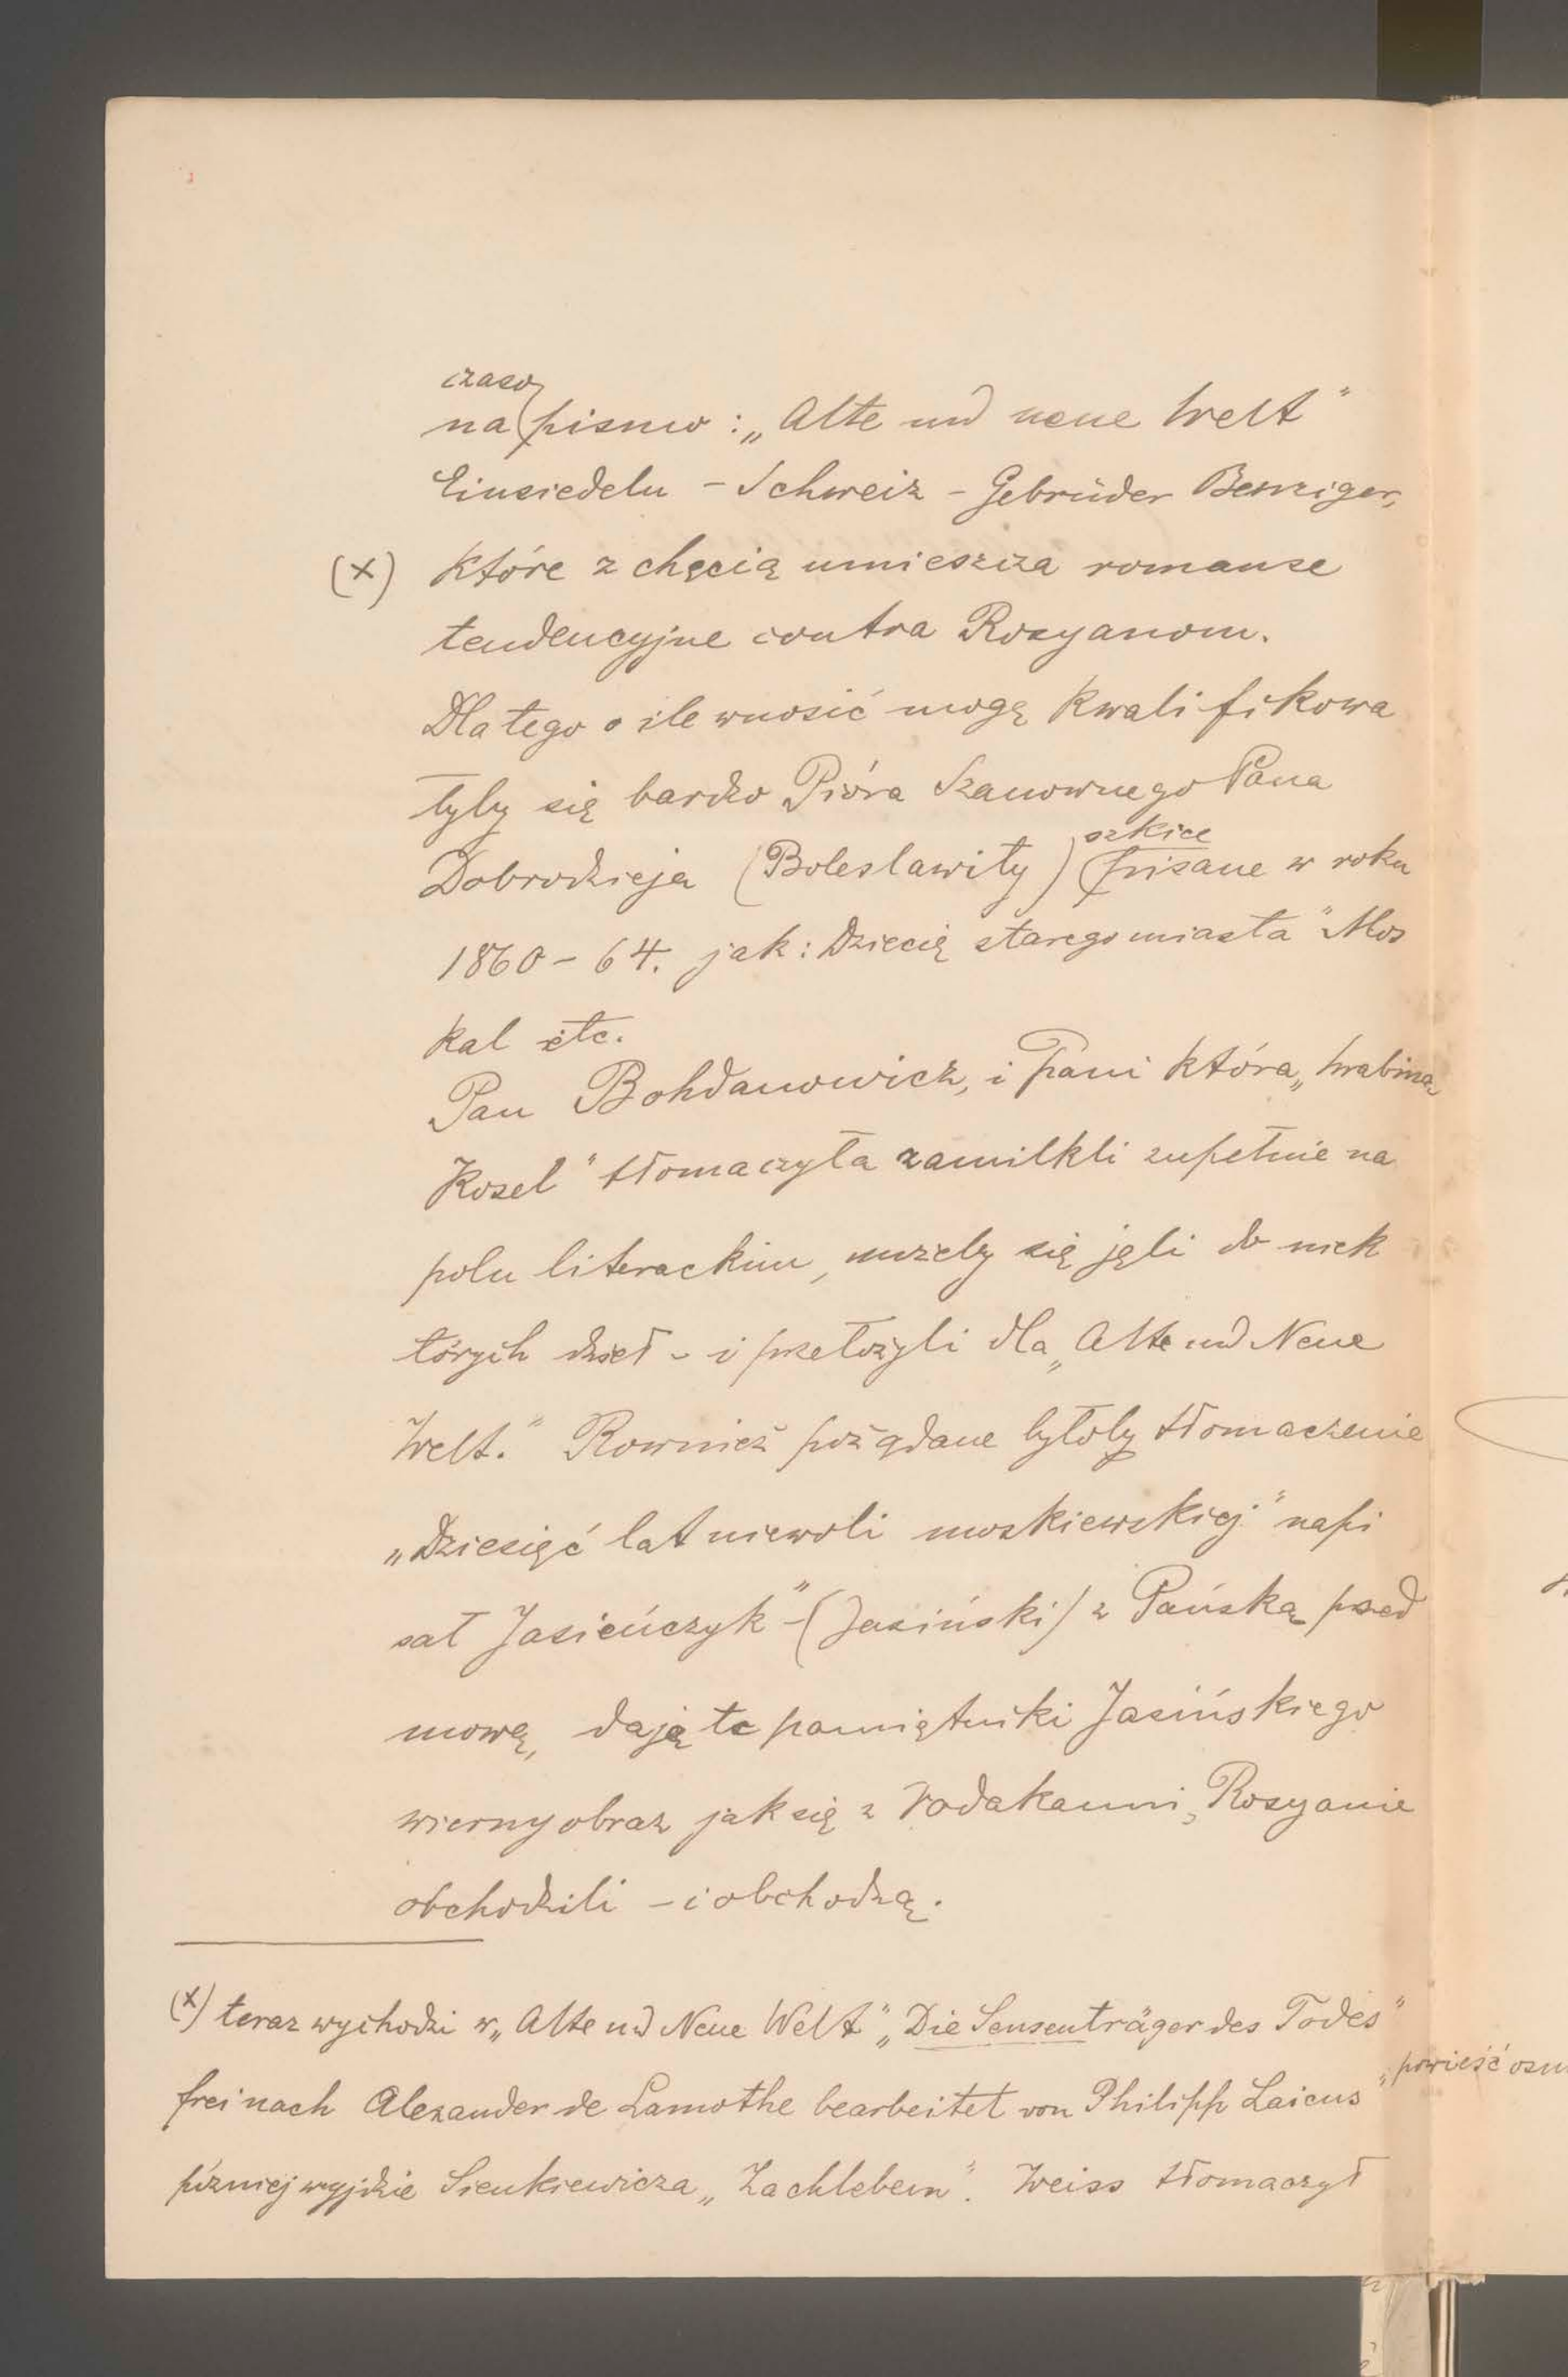 czaso
na pismo : „Alte und neue Welt"
Einsiedeln – Schweiz – Gebrüder Benziger,
(x) które z chęcią umieszcza romanse
tendencyjne contra Rosyanom.
Dlatego o ile wnosić mogę kwalifikowa
łyby się bardzo Pióra Szanownego Pana
szkice
Dobrodzieja (Boleslawity) pisane w roku
1860 – 64. jak: Dziecię starego miasta" Mos
kal etc.
Pan Bohdanowicz, i Pani która „hrabinę
Kosel" tłomaczyła zamilkli zupełnie na
polu literackim, się jęli do niek
tórych dzieł – i przełożyli dla „Alte und Neue
Welt." Rownież pożądane byłoby tłomaczenie
„Dziesięć lat niewoli moskiewskiej" napi
sał Jasieńczyk" – (Jasiński) z Pańską przed
mową, dają te pamiętniki Jasińskiego
wierny obraz jak się z rodakami, Rosyanie
obchodzili – i obchodzą.
(x) teraz wychodzi w „Alte und Neue Welt" „Die Sensenträger des Todes"
frei nach Alexander de Lamothe bearbeitet von Philipp Laicus
„powieść osn
później wyjdzie Sienkiewicza „Za chlebem". Weiss tłomaczył